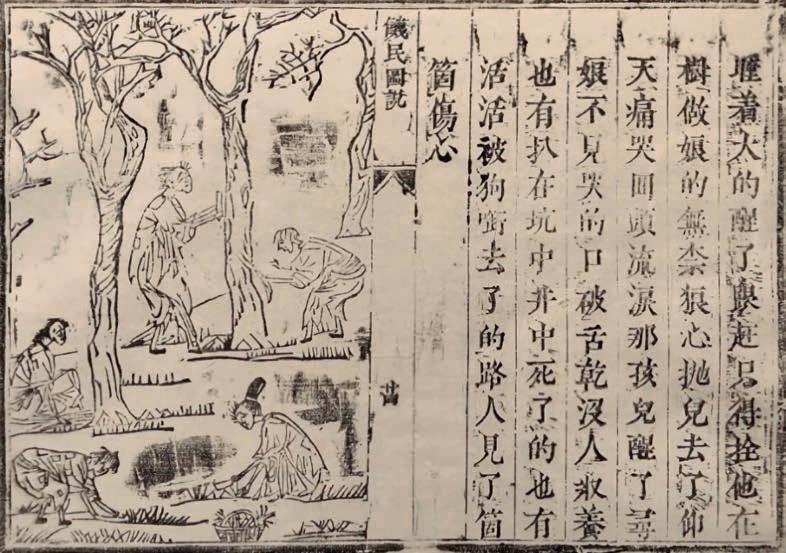 睡着大的醒了赶只得拴他在
樹做娘的無柰狠心抛兒去了仰
天痛哭囬頭流淚那孩兒醒了尋
娘不見哭的口破舌乾沒人收養
也有扒在坑中井中死了的也有
活活被狗啣去了的路人見了箇
箇傷心
饑民圖説